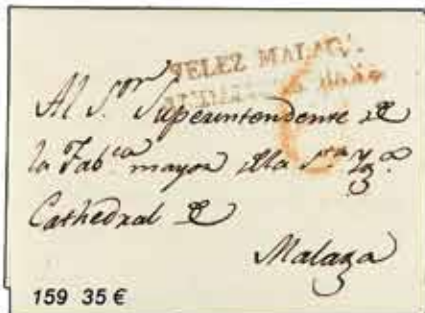 VELEZ MALAGA.
ANDALUCIA BAXA
Al S.or Superintendente de
la Fab.ca mayor de la S.ta Yg.a
Cathedral de
Malaga
159 35 €